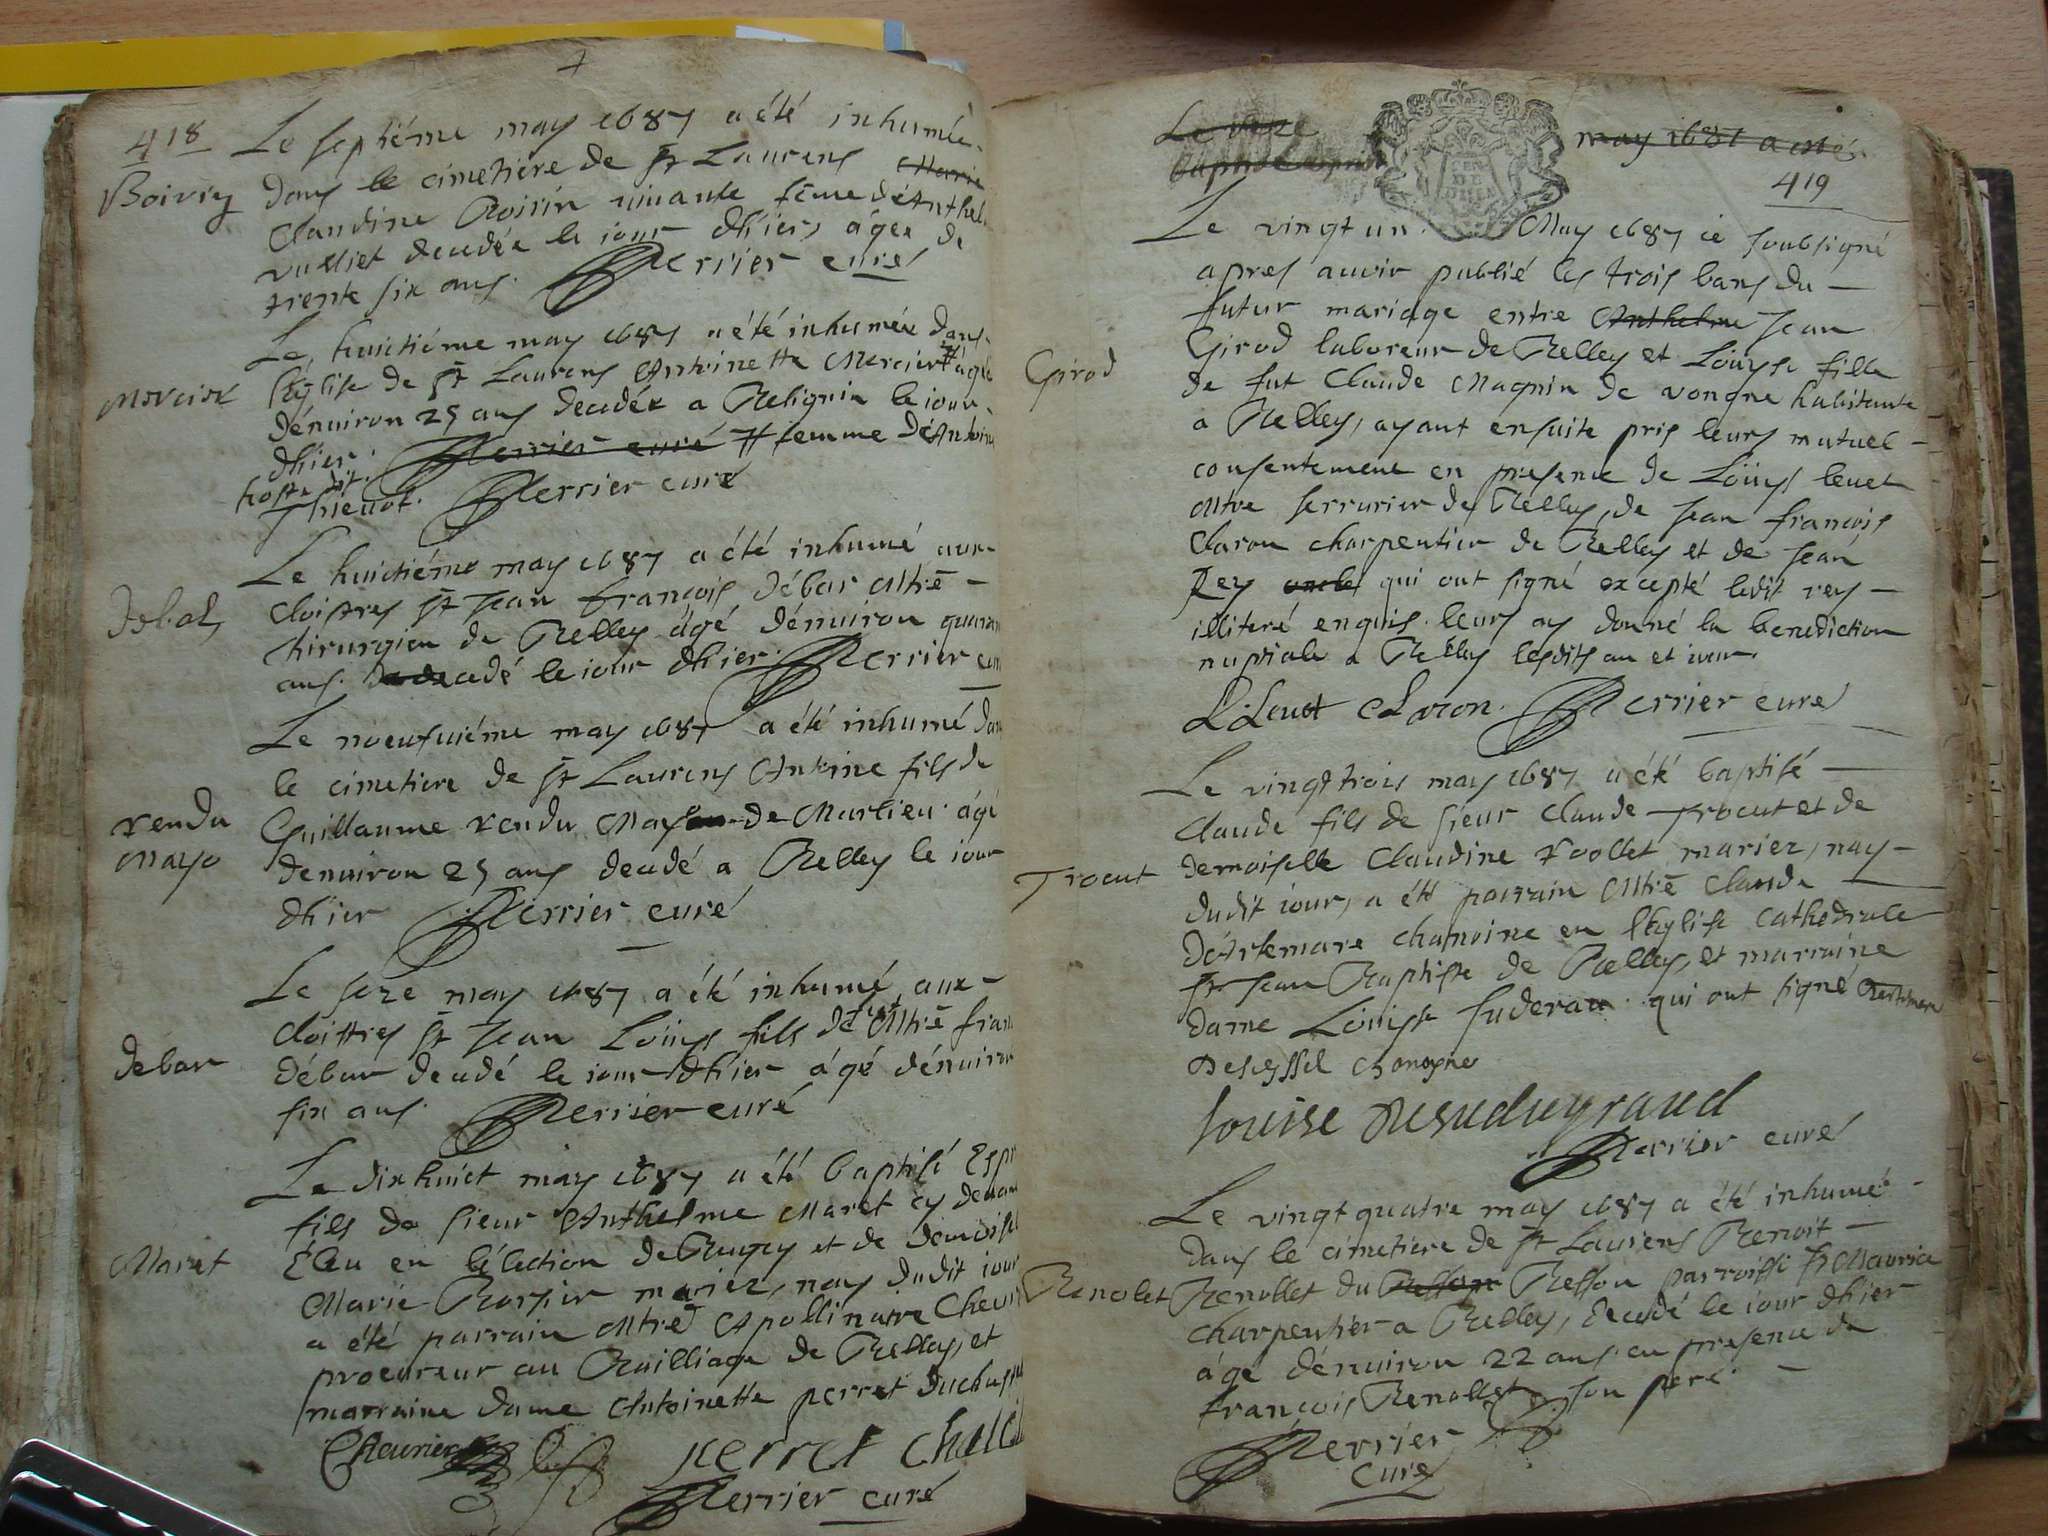 418
Le septiéme may 1687 a été inhumée
Boivin
dans le cimetiere de St Laurens Marie
Claudine Boivin vivante féme d'Anthel
vulliet decedée le iour dhier, ágée de
trente six ans. Perrier curé
Le huictiéme may 1687 a été inhumée dans
Mercier
l'Eglise de St Laurens Antoinette Mercier # ágée
dénuiron 25 ans decedée a Belignin le iour
dhier. Perrier curé # femme d'Antoine
hoste dit
Thieuot. Perrier curé
Le huictiéme may 1687 a été inhumé aux
Debar
cloistres St Jean françois Débar Mtrē
chirurgien de Belley ágé dénuiron quaran
ans. decedé le iour dhier. Perrier curé
Le noeufuiéme may 1687 a été inhumé dans
le cimetiere de St Laurens Antoine fils de
rendu
Mayo
Guillaume rendu Mayo de Marlieu ágé
denuiron 25 ans decedé a Belley le iour
dhier Perrier curé
Le seze may 1687 a été inhumé aux
cloistres St Jean Loüys fils de Mtrē fran
debar
Débar decedé le iour dhier ágé dénuiron
six ans. Perrier curé
Le dixhuict may 1687 a été baptisé Espr
fils de sieur Anthelme Maret cy deuant
Maret
Éleu en l'élection de Bugey et de demoise
Marie Rosier mariez, nay dudit iour
a été parrain Mtrē Apollinaire Cheur
procureur au Bailliage de Belley, et
marraine dame Antoinette perret
Cheurier perret
Perrier curé
Le
may 1687 a esté
419
Le vingt un May 1687 ie soubsigné
apres auoir publié les trois bans du
futur mariage entre Anthelme Jean
Girod
Girod laboreur de Belley et Loüyse fille
de fut Claude Magnin de vongne habitante
a Belley, ayant ensuite pris leurs mutuel
consentement en presence de Loüys leuet
Mtre serrurier de Belley, de Jean françois
Claron charpentier de Belley et de Jean
Rey qui ont signé excepté ledit rey
illiteré enquis. leurs ay donné la benediction
nuptiale a Belley lesdits an et iour.
L. Leuet Claron. Perrier curé
Le vingt trois may 1687 a été baptisé
Claude fils de sieur Claude Trocut et de
Trocut
demoiselle Claudine mariez, nay
dudit iour, a été parrain Mtrē Claude
d'Artemare chanoine en l'Eglise Cathedrale
St Jean Baptiste de Belley, et marraine
dame Loüise qui ont signé
Deseyssel
Louise
Perrier curé
Le vingt quatre may 1687 a été inhumé
dans le cimetiere de St Laurens Benoit
Benolet
Benollet du Besson parroisse St Maurice
charpentier a Belley, decedé le iour dhier
ágé dénuiron 22 ans. en presence de
françois Benollet son pere.
Perrier
curé